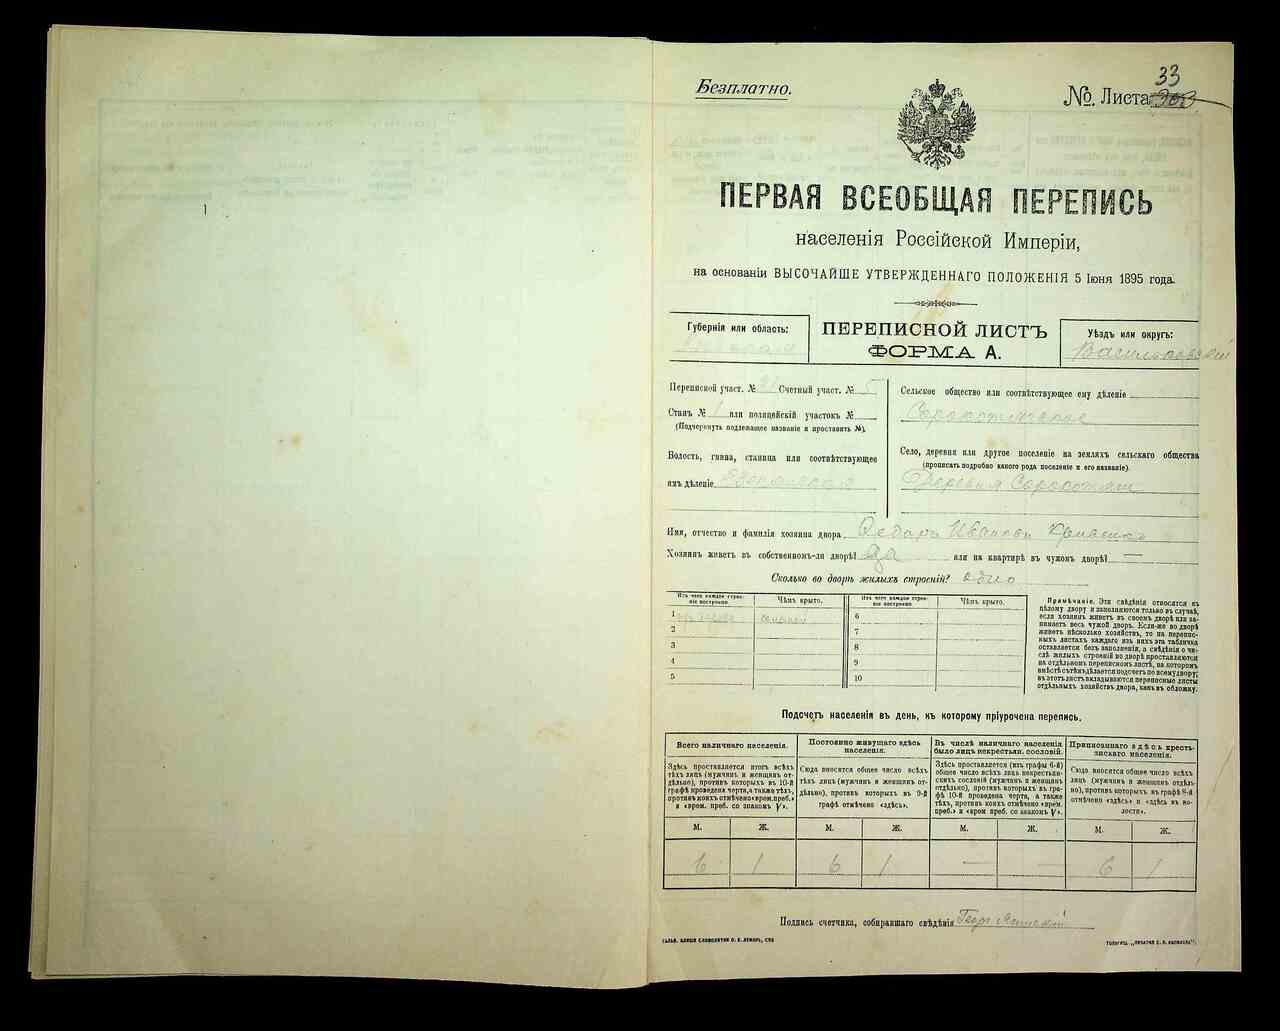 Безплатно.
33
№. Листа
ПЕРВАЯ ВСЕОБЩАЯ ПЕРЕПИСЬ
населенія Россійской Имперіи,
на основаніи ВЫСОЧАЙШЕ УТВЕРЖДЕННАГО ПОЛОЖЕНІЯ 5 Іюня 1895 года.
Губернія или область:
ПЕРЕПИСНОЙ ЛИСТЪ
ФОРМА А.
Уѣздъ или округъ:
Васильковскій
Переписной участ. № Счетный участ. № 5
Станъ № 1 или полицейскій участокъ №
(Подчеркнуть подлежащее названіе и проставить №).
Волость, гмина, станица или соотвѣтствующее
имъ дѣленіе
Сельское общество или соотвѣтствующее ему дѣленіе
Село, деревня или другое поселеніе на земляхъ сельскаго общества
(прописать подробно какого рода поселеніе и его названіе).
Деревня
Имя, отчество и фамилія хозяина двора Ивановъ
Хозяинъ живетъ въ собственномъ-ли дворѣ? Да или на квартирѣ въ чужомъ дворѣ? —
Сколько во дворѣ жилыхъ строеній? одно
Изъ чего каждое строеніе построено.
Чѣмъ крыто.
Изъ чего каждое строеніе построено.
Чѣмъ крыто.
1 соломой
2
3
4
5
6
7
8
9
10
Примѣчаніе. Эти свѣдѣнія относятся къ
цѣлому двору и заполняются только въ случаѣ,
если хозяинъ живетъ въ своемъ дворѣ или занимаетъ
весь чужой дворъ. Если-же во дворѣ
живетъ нѣсколько хозяйствъ, то на переписныхъ
листахъ каждаго изъ нихъ эта табличка
оставляется безъ заполненія, а свѣдѣнія о числѣ
жилыхъ строеній во дворѣ проставляются
на отдѣльномъ переписномъ листѣ, на которомъ
вмѣстѣ съ тѣмъ дѣлается подсчетъ по всему двору;
въ этотъ листъ вкладываются переписные листы
отдѣльныхъ хозяйствъ двора, какъ въ обложку.
Подсчетъ населенія въ день, къ которому пріурочена перепись.
Всего наличнаго населенія.
Здѣсь проставляется итогъ всѣхъ
тѣхъ лицъ (мужчинъ и женщинъ отдѣльно),
противъ которыхъ въ 10-й
графѣ проведена черта, а также тѣхъ,
противъ коихъ отмѣчено «врем. преб.»
и «врем. преб. со знакомъ V».
Постоянно живущаго здѣсь
населенія.
Сюда вносится общее число всѣхъ
тѣхъ лицъ (мужчинъ и женщинъ отдѣльно),
противъ которыхъ въ 9-й
графѣ отмѣчено «здѣсь».
Въ числѣ наличнаго населенія
было лицъ некрестьян. сословій.
Здѣсь проставляется (изъ графы 6-й)
общее число всѣхъ лицъ некрестьянскихъ
сословій (мужчинъ и женщинъ
отдѣльно), противъ которыхъ въ графѣ
10-й проведена черта, а также
тѣхъ, противъ коихъ отмѣчено «врем.
преб.» и «врем. преб. со знакомъ V».
Приписаннаго здѣсь крестьянскаго
населенія.
Сюда вносится общее число всѣхъ
лицъ (мужчинъ и женщинъ отдѣльно),
противъ которыхъ въ графѣ 8-й
отмѣчено «здѣсь» и «здѣсь въ волости».
М. Ж. М. Ж. М. Ж. М. Ж.
6 1 6 1 — — 6 1
Подпись счетчика, собиравшаго свѣдѣнія